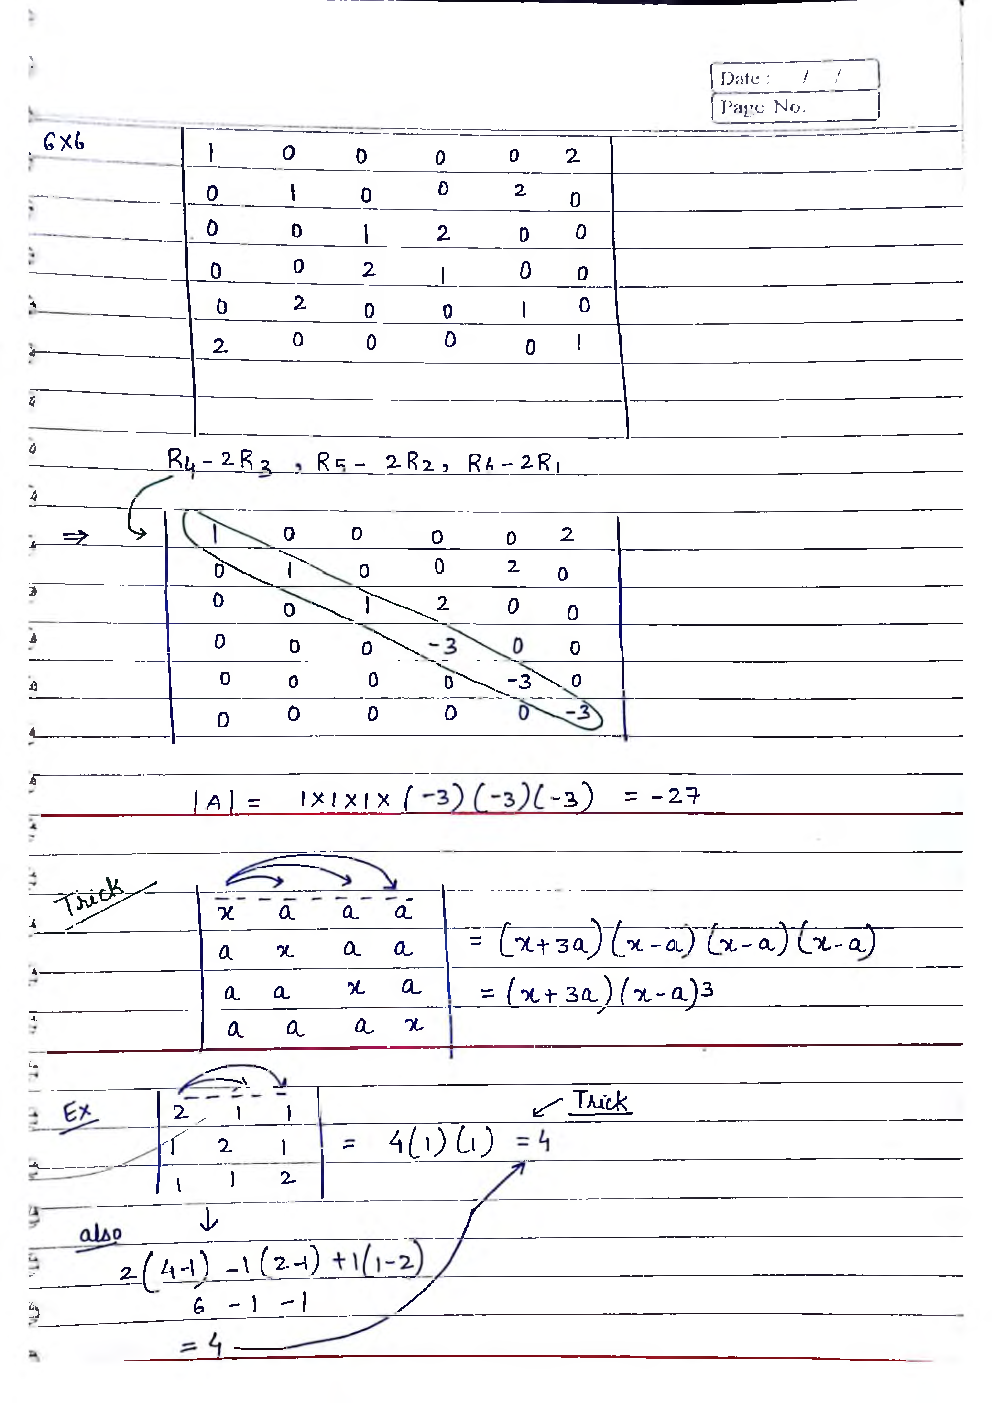 Date : / /
Page No.
6×6
1 0 0 0 0 2
0 1 0 0 2 0
0 0 1 2 0 0
0 0 2 1 0 0
0 2 0 0 1 0
2 0 0 0 0 1
R4-2R3 , R5-2R2, R6-2R1
⇒
1 0 0 0 0 2
0 1 0 0 2 0
0 0 1 2 0 0
0 0 0 -3 0 0
0 0 0 0 -3 0
0 0 0 0 0 -3
|A| = 1×1×1×(-3)(-3)(-3) = -27
Trick
x a a a
a x a a = (x+3a)(x-a)(x-a)(x-a)
a a x a = (x+3a)(x-a)3
a a a x
Trick
Ex 2 1 1
1 2 1 = 4(1)(1) = 4
1 1 2
↓
also
2(4-1) -1(2-1) +1(1-2)
6 -1 -1
= 4